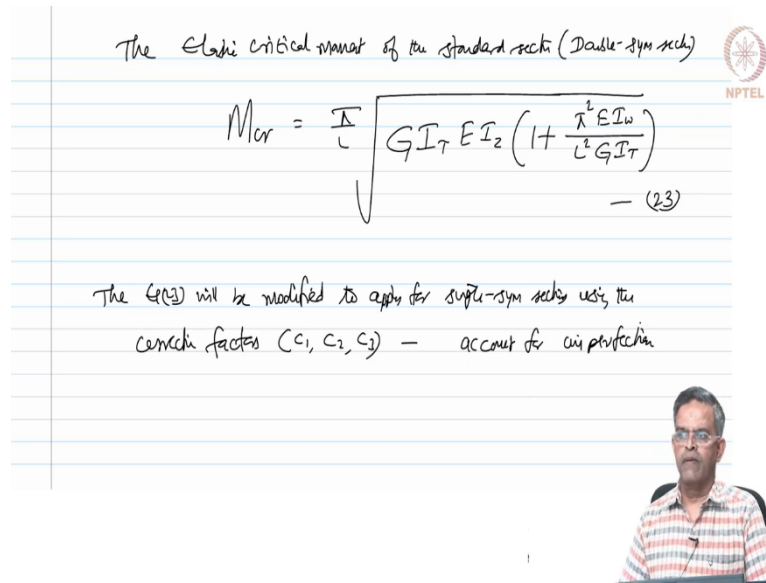 The Elastic critical moment of the standard section (Double-sym section)
NPTEL
Mcr = π/L √(G I_T E I_z (1 + π² E I_w / L² G I_T))
— (23)
The Eq(23) will be modified to apply for single-sym section using the
correction factors (C1, C2, C3) — account for imperfection